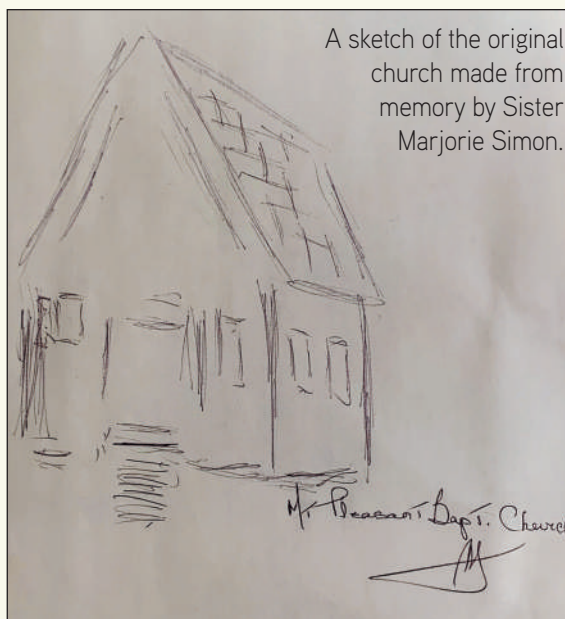 A sketch of the original
church made from
memory by Sister
Marjorie Simon.
Mt. Pleasant Bapt. Church